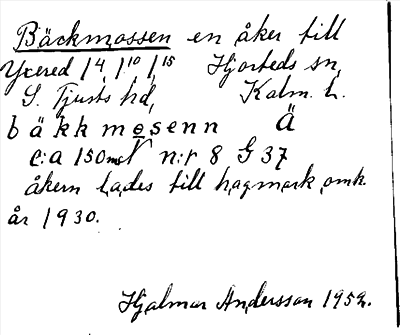 Bäckmossen en åker till
Yxered 1/4, 1/10, 1/15 Hjorteds sn,
S. Tjusts hd, Kalm. l.
bäkkmosenn Ä
c:a 150 m N n:r 8 G 37
åkern lades till hagmark omk.
år 1930.
Hjalmar Andersson 1952.